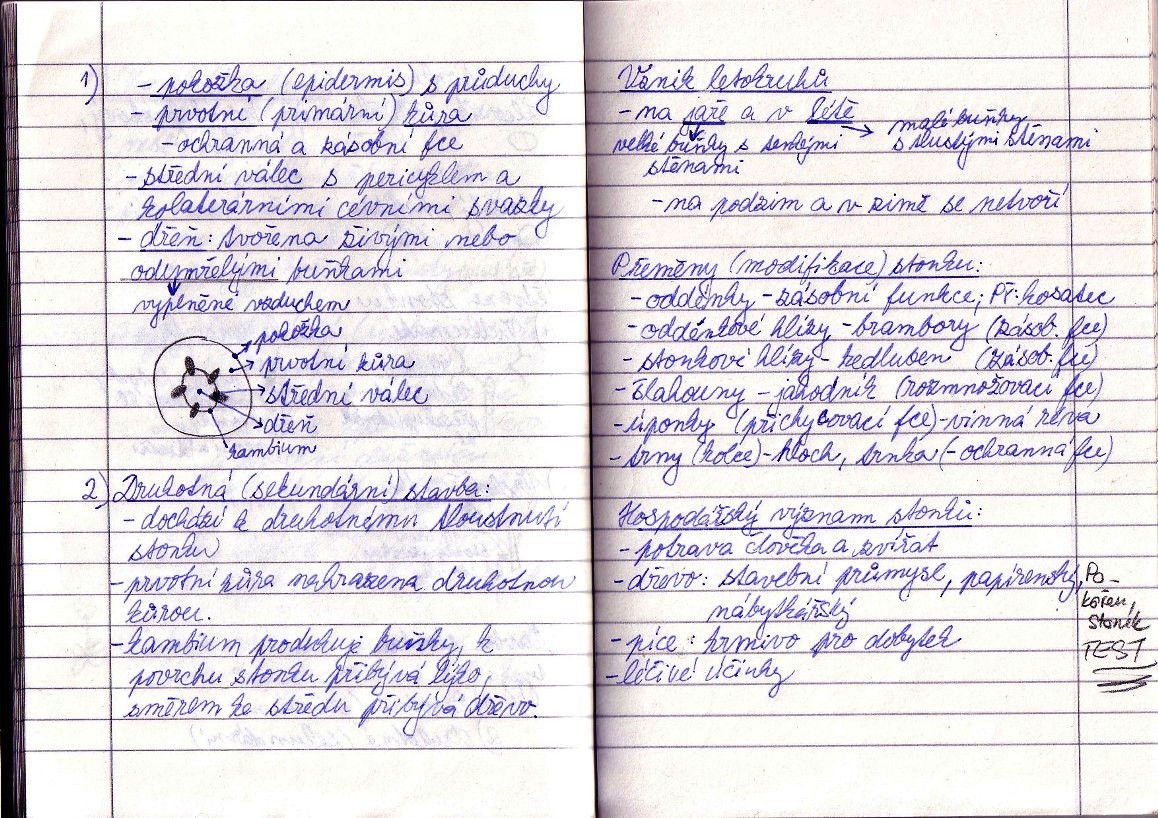 1) - pokožka (epidermis) s průduchy
- prvotní (primární) kůra
- ochranná a zásobní fce
- střední válec s pericyklem a
kolaterárními cévními svazky
- dřeň: tvořena živými nebo
odumřelými buňkami
vyplněné vzduchem
pokožka
prvotní kůra
střední válec
dřeň
kambium
2) Druhotná (sekundární) stavba:
- dochází k druhotnému tloustnutí
stonku
- prvotní kůra nahrazena druhotnou
kůrou.
- kambium produkuje buňky, k
povrchu stonku přibývá lýko,
směrem ke středu přibývá dřevo.
Vznik letokruhů
- na jaře a v létě
velké buňky s tenkými
stěnami
malé buňky
s tlustými stěnami
- na podzim a v zimě se netvoří
Přeměny (modifikace) stonku:
- oddenky - zásobní funkce; Př: kosatec
- oddenkové hlízy - brambory (zásob. fce)
- stonkové hlízy - kedluben (zásob. fce)
- šlahouny - jahodník (rozmnožovací fce)
- úponky (přichycovací fce) - vinná réva
- trny (kolce) - hloh, trnka (- ochranná fce)
Hospodářský význam stonku:
- potrava člověka a zvířat
- dřevo: stavební průmysl, papírenský,
nábytkářský
- píce: krmivo pro dobytek
- léčivé účinky
Po-
kořen,
stonek
TEST